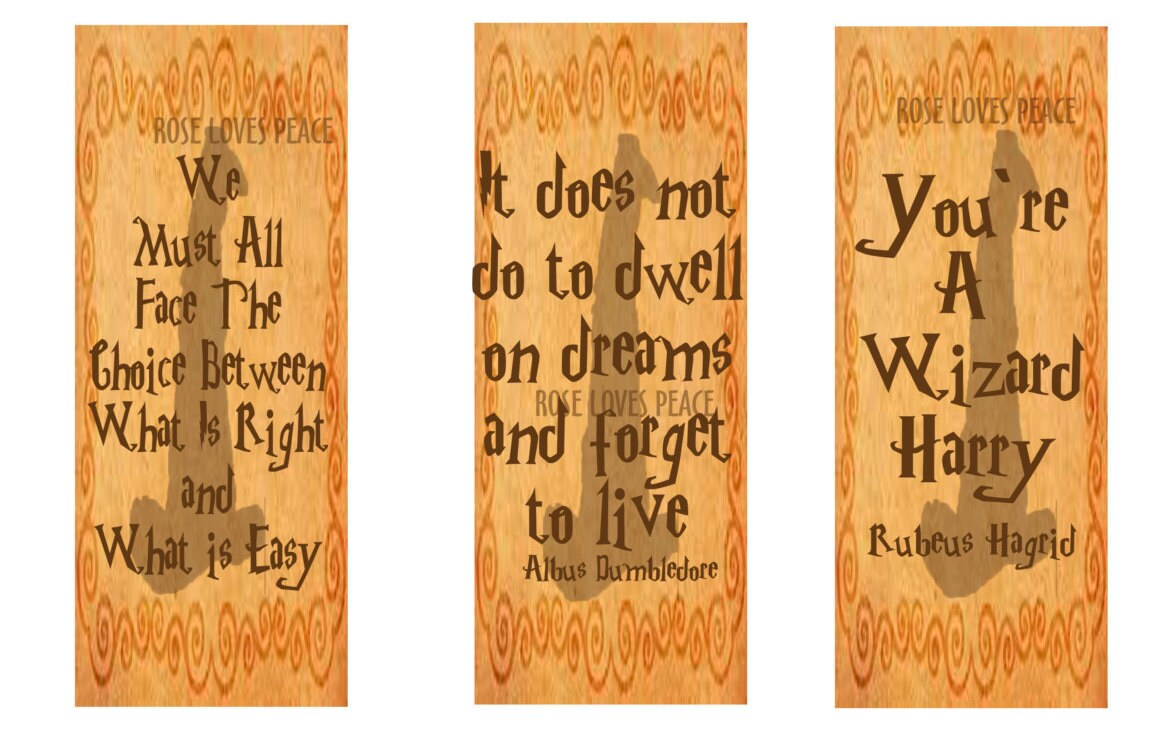 ROSE LOVES PEACE
We
Must All
Face The
Choice Between
What Is Right
and
What is Easy
It does not
do to dwell
on dreams
ROSE LOVES PEACE
and forget
to live
Albus Dumbledore
ROSE LOVES PEACE
You`re
A
Wizard
Harry
Rubeus Hagrid